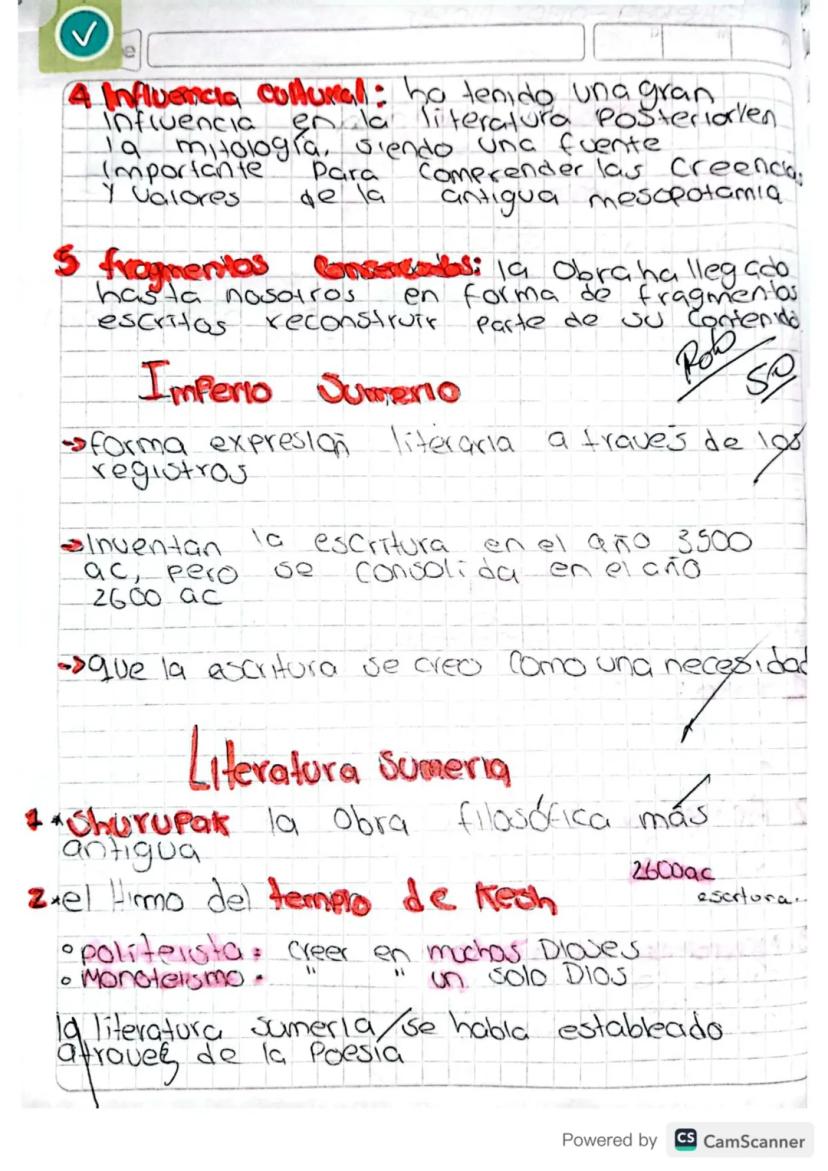 e
4 Influencia cultural: ha tenido una gran
influencia en la literatura posterior y en
la mitología, siendo una fuente
importante para comprender las creencias
y valores de la antigua mesopotamia
5 fragmentos conservados: la obra ha llegado
hasta nosotros en forma de fragmentos
escritos reconstruir parte de su contenido
50
Imperio Sumerio
→forma expresion literaria a través de los
registros
→Inventan la escritura en el año 3500
ac, pero se consolida en el año
2600 ac
→que la escritura se creo como una necesidad
Literatura sumeria
1 *Shurupak la obra filosófica más
antigua
2 *el Himno del templo de Kesh
2600ac
escritura..
° politeista: creer en muchos Dioses
° Monoteismo. " " un solo Dios
la literatura sumeria/se habla estableado
através de la Poesia
Powered by CS CamScanner